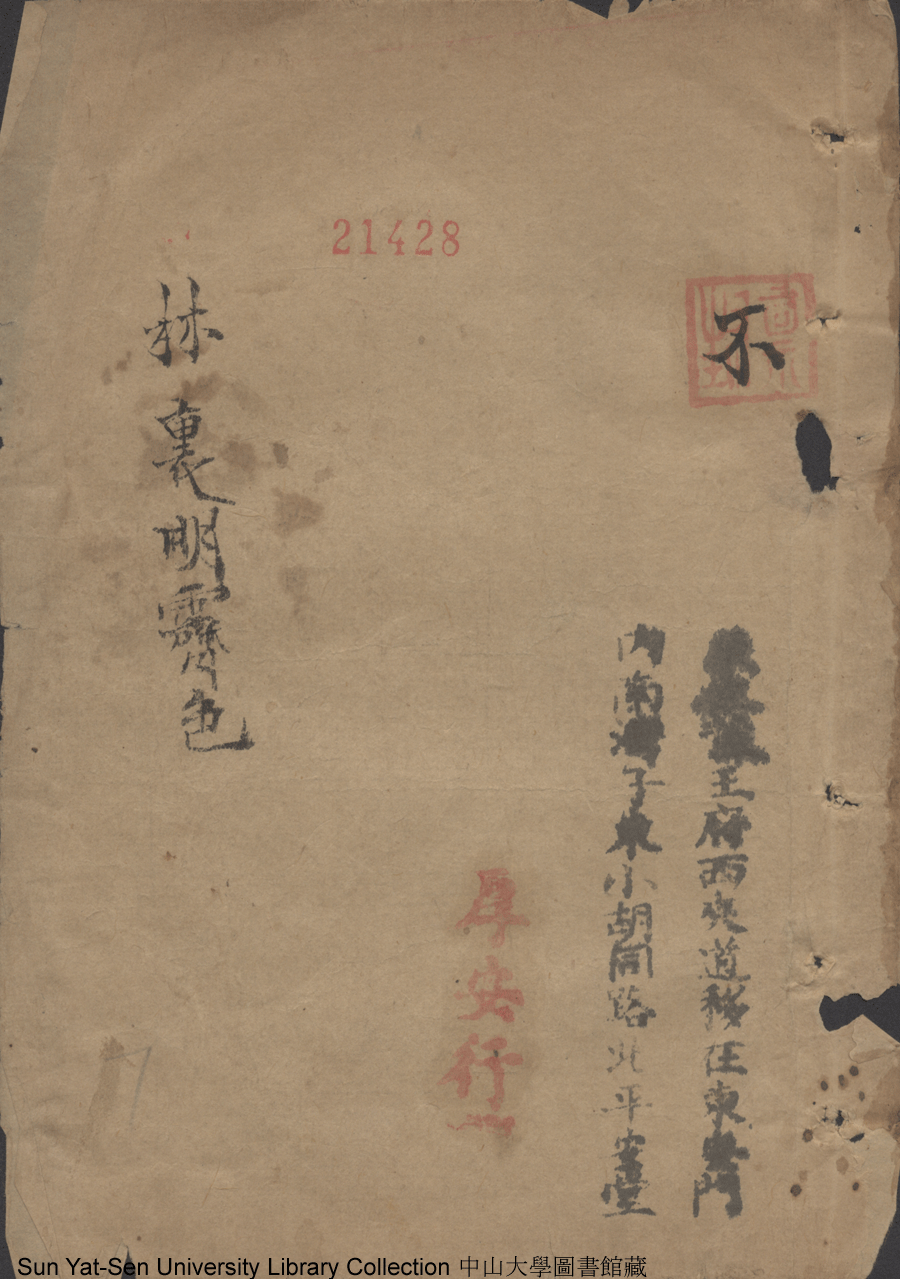 21428
不
王府西夾道移在東安門
內南灣子東小胡同路北平安堂
厚安行
林裏明齋色
Sun Yat-Sen University Library Collection 中山大學圖書館藏